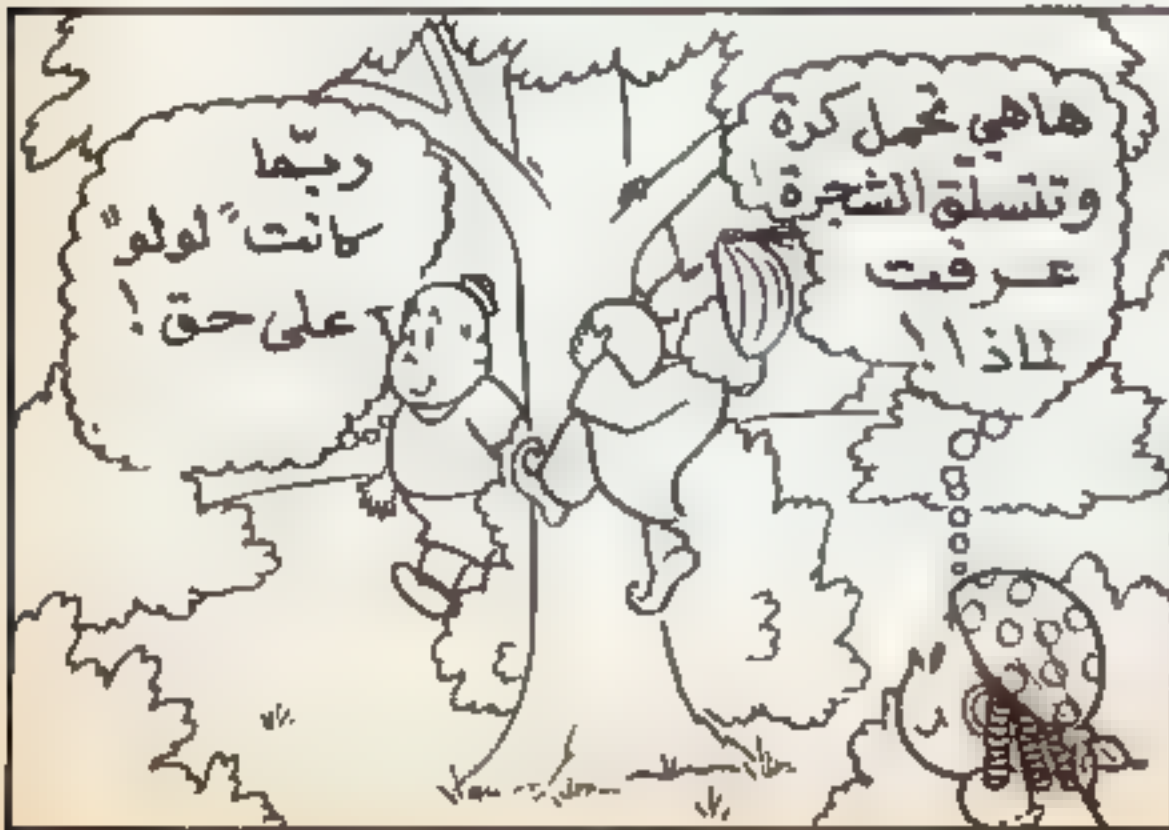 هاهي تحمل كرة
وتتسلق الشجرة
عرفت
لماذا!
ربّما
كانت "لولو"
على حق!